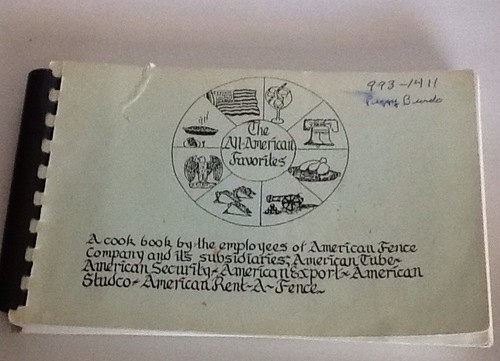 993-1411
Peggy
The
All-American
Favorites
A cook book by the employees of American Fence
Company and its subsidiaries; American Tube~
American Security~American Export~American
Studco~American Rent~A~Fence~